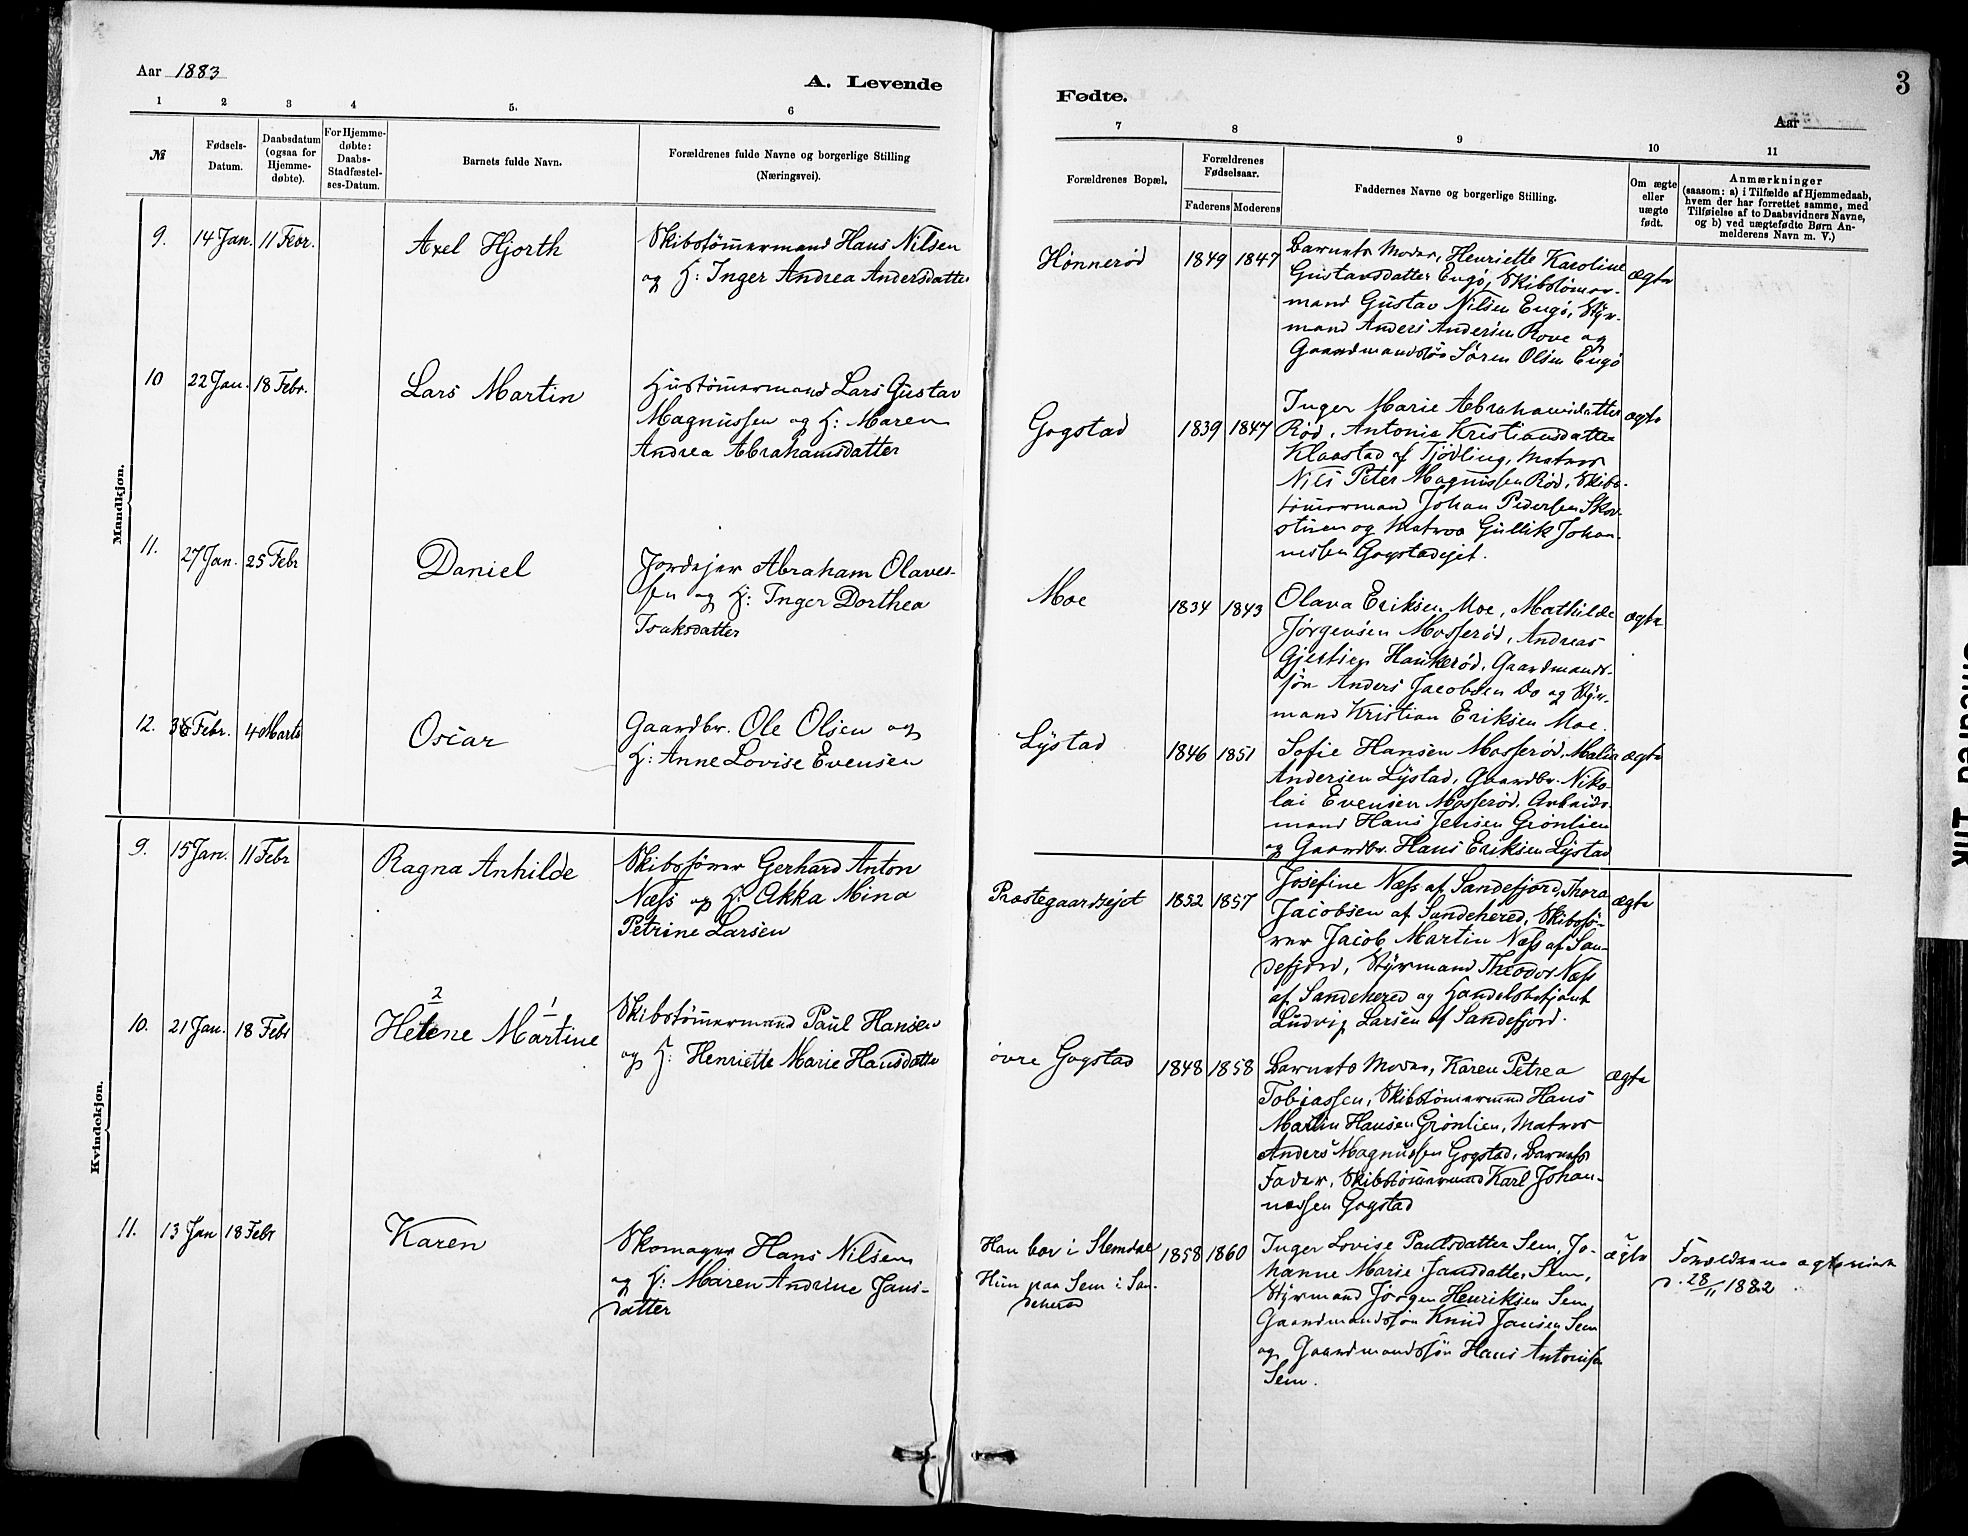 Aar 1883
A. Levende
1 2 3 4 5. 6
№
Fødsels-
Datum.
Daabsdatum
(ogsaa for
Hjemme-
døbte).
For Hjemme-
døbte:
Daabs-
Stadfæstel-
ses-Datum.
Barnets fulde Navn.
Forældrenes fulde Navne og borgerlige Stilling
(Næringsvei).
Mandkjøn.
9. 14 Jan. 11 Febr. Axel Hjorth
Skibstömmermand Hans Nilsen
og H: Inger Andrea Andersdatter
10 22 Jan. 18 Febr. Lars Martin
Hustömmermand Lars Gustav
Magnussen og H: Maren
Andrea Abrahamsdatter
11. 27 Jan. 25 Febr Daniel
Jordejer Abraham Olaves-
sen og H: Inger Dorthea
Isaksdatter
12. 3 Febr. 4 Marts Oscar
Gaardbr. Ole Olsen og
H: Anne Lovise Evensen
Kvindekjøn.
9. 15 Jan. 11 Febr Ragna Anhilde
Skibsförer Gerhard Anton
Næss og H: Akka Mina
Petrine Larsen
10. 21 Jan. 18 Febr
2 1
Helene Martine
Skibstömmermand Paul Hansen
og H: Henriette Marie Hansdatter
11. 13 Jan 18 Febr Karen
Skomager Hans Nilsen
og H: Maren Andrine Jans-
datter
3
Fødte.
Aar
7 8 9 10 11
Forældrenes Bopæl.
Forældrenes
Fødselsaar.
Faderens Moderens
Faddernes Navne og borgerlige Stilling.
Om ægte
eller
uægte
født.
Anmærkninger
(saasom: a) i Tilfælde af Hjemmedaab,
hvem der har forrettet samme, med
Tilføielse af to Daabsvidners Navne,
og b) ved uægtefødte Børn An-
melderens Navn m. V.)
Hönnerød 1849 1847 ægte
Barnets Moder, Henriette Karoline
Gustavsdatter Engø, Skibstömer-
mand Gustav Nilsen Engø, Styr-
mand Anders Andersen Rove og
Gaardmandssön Søren Olsen Engø
Gogstad 1839 1847 ægte
Inger Marie Abrahamsdatter
Rød, Antonie Kristiansdatter
Klaastad af Tjødling, Matros
Nils Peter Magnussen Rød, Skibs-
tömmermand Johan Pedersen Skov-
stuen og Matros Gullik Johan-
nessen Gogstadejet.
Moe 1834 1843 ægte
Olava Eriksen Moe, Mathilde
Jørgensen Mosserød, Andreas
Gjertsen Haukerød, Gaardmands-
søn Anders Jacobsen Do og Styr-
mand Kristian Eriksen Moe.
Lystad 1846 1851 ægte
Sofie Hansen Mosserød, Malia
Andersen Lystad, Gaardbr. Niko-
lai Evensen Mosserød, Arbeids-
mand Hans Jensen Grönlien
og Gaardbr. Hans Eriksen Lystad
Præstegaardsejet 1852 1857 ægte
Josefine Næss af Sandefjord, Thora
Jacobsen af Sandehered, Skibsfö-
rer Jacob Martin Næss af San-
defjord, Styrmand Theodor Næss
af Sandehered og Handelsbetjent
Ludvig Larsen af Sandefjord.
övre Gogstad 1848 1858 ægte
Barnets Moder, Karen Petrea
Tobiassen, Skibstömermand Hans
Martin Hansen Grönlien, Matros
Anders Magnussen Gogstad, Barnets
Fader, Skibstömmermand Karl Johan-
nessen Gogstad
Han bor i Slemdal
Hun paa Sem i San-
dehered
1858 1860 ægte
Inger Lovise Paulsdatter Sem, Jo-
hanne Marie Jansdatter Sem,
Styrmand Jörgen Henriksen Sem,
Gaardmandssøn Knud Jansen Sem
og Gaardmandssön Hans Antonisen
Sem.
Forældrene ægteviede
d. 28/11 1882